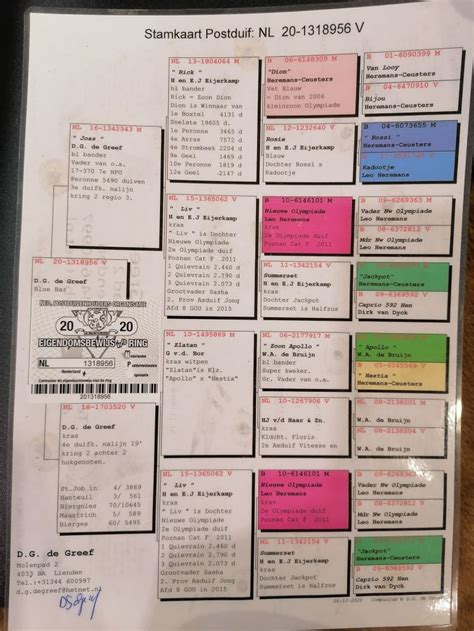 Stamkaart Postduif: NL 20-1318956 V
NL 16-1342343 M
" Joas "
D.G. de Greef
bl bander
Vader van o.a.
17-370 7e NPO
Peronne 5490 duiven
3e duifk. nalijn
kring 2 regio 3.
NL 20-1318956 V
D.G. de Greef
Blue Bar
NED. POSTDUIVENHOUDERS ORGANISATIE
20 20
EIGENDOMSBEWIJS v/d RING
NL 1318956
Nederland
201318956
NL 18-1703520 V
D.G. de Greef
kras
4e duifk. nalijn 19'
kring 2 echter 2
hokgenoten.
St.Job in 4/ 3869
Hanteuil 3/ 561
Niergnies 70/10645
Maastrich 5/ 589
Bierges 60/ 5495
D.G. de Greef
Molenpad 2
4033 BA Lienden
Tel.:+31344 600997
d.g.degreef@hetnet.nl
NL 13-1804064 M
" Rick "
H en E.J Eijerkamp
bl bander
Rick = Zoon Dion
Dion is Winnaar van
1e Boxtel 4131 d
Diksmuide
1e Peronne 3465 d
4e Arras 7254 d
4e Strombeek 2204 d
9e Geel 3639 d
10e Peronne 3442 d
12e Geel 2147 d
NL 15-1365062 V
" Liv "
H en E.J Eijerkamp
kras
" Liv" is Dochter
Nieuwe Olympiade
2e Olympiade duif
Poznan Cat F 2011
1 Quievrain 2.260 d
1 Quievrain 2.790 d
3 Quievrain 2.573 d
Grootvader Sasha
2. Prov Asduif Jong
Afd 8 GOU in 2015
NL 10-1495869 M
" Zlatan "
G v.d. Bor
kras witpen
"Zlatan"is Klz.
"Apollo" x "Hestia"
NL 15-1365062 V
" Liv "
H en E.J Eijerkamp
kras
" Liv" is Dochter
Nieuwe Olympiade
2e Olympiade duif
Poznan Cat F 2011
1 Quievrain 2.260 d
1 Quievrain 2.790 d
3 Quievrain 2.573 d
Grootvader Sasha
2. Prov Asduif Jong
Afd 8 GOU in 2015
B 06-6148309 M
"Dion"
Heremans-Ceusters
Vet Blauw
= Dion van 2006
kleinzoon Olympiade
NL 12-1232640 V
Rosie
H en E.J Eijerkamp
Blauw
Dochter Rossi x
Kadootje
B 10-6146101 M
Nieuwe Olympiade
Leo Heremans
kras
2e Olympiade duif
Poznan Cat F 2011
NL 11-1342154 V
Summerset
H en E.J Eijerkamp
kras
Dochter Jackpot x
Halfzus Summerset
NL 06-2177917 M
" Zoon Apollo "
W.A. de Bruijn
bl bander
Super kweker.
Gr. Vader van o.a.
NL 10-1297506 V
HJ v/d Haar & Zn.
kras
Kldcht. Floris
2e Asduif Vitesse en
B 10-6146101 M
Nieuwe Olympiade
Leo Heremans
kras
2e Olympiade duif
Poznan Cat F 2011
NL 11-1342154 V
Summerset
H en E.J Eijerkamp
kras
Dochter Jackpot x
Halfzus Summerset
B 01-6090399 M
Van Looy
Heremans-Ceusters
B 04-6470910 V
Bijou
Heremans-Ceusters
B 04-6073655 M
Rossi
Heremans-Ceusters
Kadootje
Leo Heremans
B 09-6269363 M
Vader Nw Olympiade
Leo Heremans
B 08-6372812 V
Mdr Nw Olympiade
Leo Heremans
"Jackpot"
Heremans-Ceusters
Caprio 592 Hen
Dirk van Dyck
" Apollo "
W.A. de Bruijn
B 05-6045569 V
" Hestia "
Heremans-Ceusters
W.A. de Bruijn
W.A. de Bruijn
B 09-6269363 M
Vader Nw Olympiade
Leo Heremans
B 08-6372812 V
Leo Heremans
"Jackpot"
Heremans-Ceusters
Caprio 592 Hen
Dirk van Dyck
Compuclub © D.G. de Greef